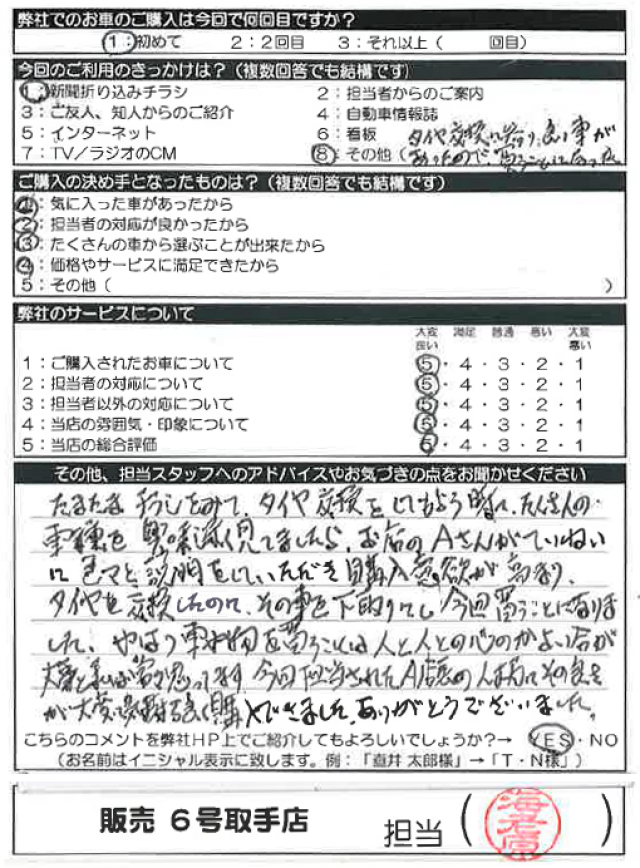 弊社でのお車のご購入は今回で何回目ですか？
1：初めて 2：2回目 3：それ以上（ 回目）
今回のご利用のきっかけは？（複数回答でも結構です）
1：新聞折り込みチラシ 2：担当者からのご案内
3：ご友人、知人からのご紹介 4：自動車情報誌
5：インターネット 6：看板
7：TV／ラジオのCM 8：その他（タイヤ交換に寄り、良い車が
あったので、買うことになった
ご購入の決め手となったものは？（複数回答でも結構です）
1：気に入った車があったから
2：担当者の対応が良かったから
3：たくさんの車から選ぶことが出来たから
4：価格やサービスに満足できたから
5：その他（ ）
弊社のサービスについて
大変良い 満足 普通 悪い 大変悪い
1：ご購入されたお車について 5・4・3・2・1
2：担当者の対応について 5・4・3・2・1
3：担当者以外の対応について 5・4・3・2・1
4：当店の雰囲気・印象について 5・4・3・2・1
5：当店の総合評価 5・4・3・2・1
その他、担当スタッフへのアドバイスやお気づきの点をお聞かせください
たまたまチラシをみて、タイヤ交換をしてもらう時に、たくさんの
車種を興味深く見てましたら、お店のAさんがていねい
に色々と説明をしていただき購入意欲が高まり、
タイヤを交換したのに、その車を下取りにし今回買うことになりま
した。やはり車や物を買うことは人と人との心のかよい合が
大事と私は常々思ってます。今回担当されたA店長の人柄に
が大変 購入できました。ありがとうございました。
こちらのコメントを弊社HP上でご紹介してもよろしいでしょうか？→ YES・NO
（お名前はイニシャル表示に致します。例：「直井 太郎様」→「T・N様」）
販売 6号取手店 担当（海老原）